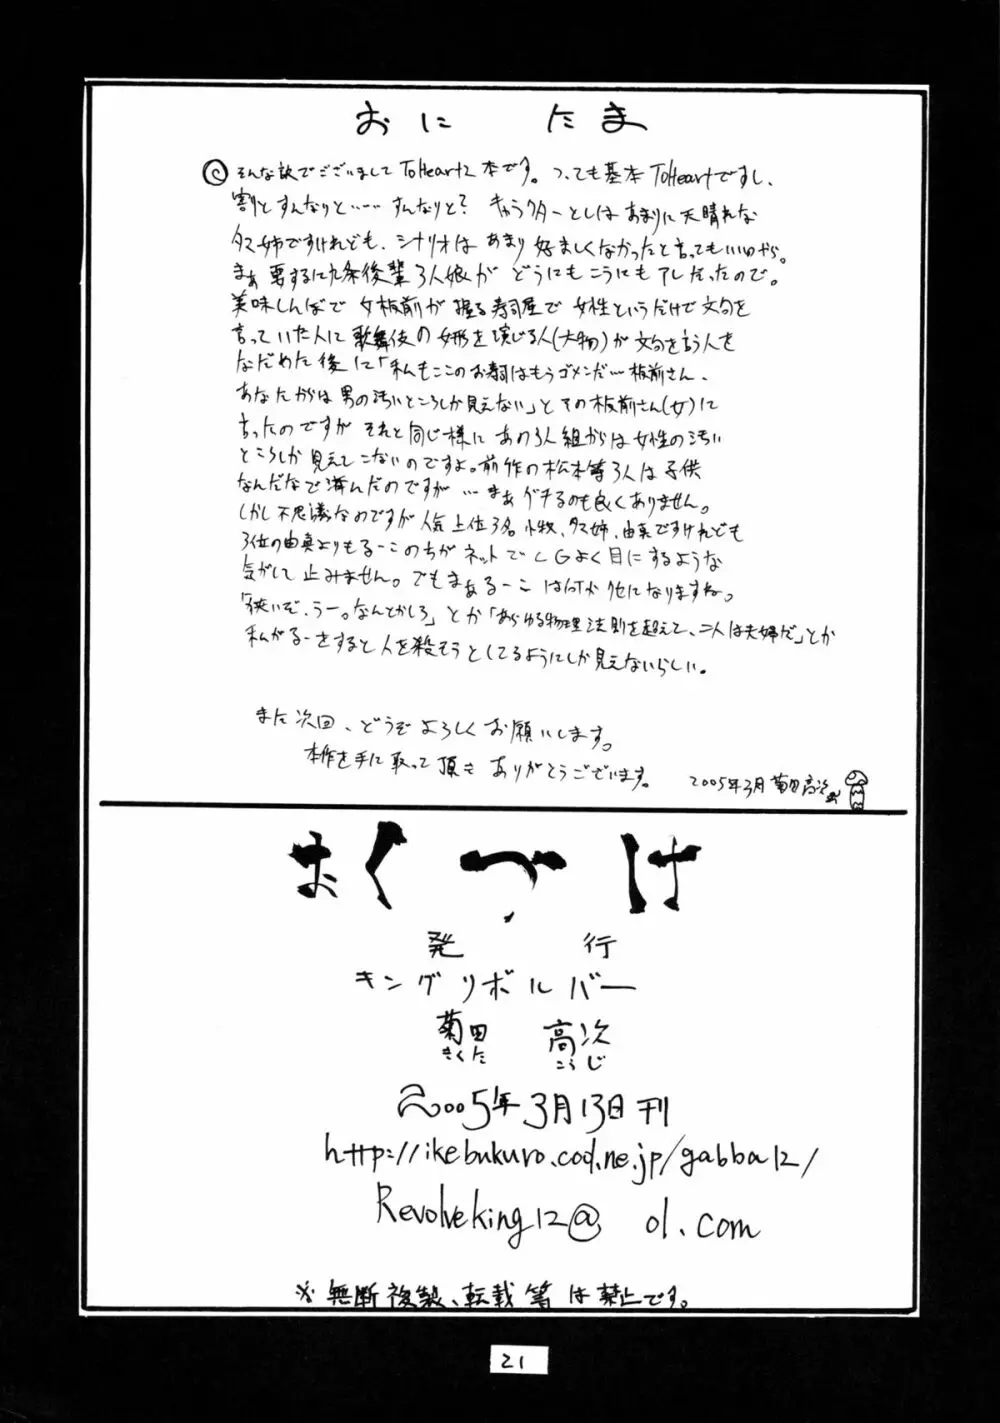 おに たま
そんな訳でございまして ToHeart2 本です。つっても基本 ToHeartですし、
割と すんなりと…… すんなりと? キャラクターとしは あまりに天晴れな
タマ姉ですけれども、シナリオは あまり 好ましくなかったと言ってもいいやら。
まぁ 要するに九条後輩3人娘が どうにもこうにもアレだったので。
美味しんぼで 女板前が 握る寿司屋で 女性というだけで文句を
言っていた人に 歌舞伎の女形を演じる人(大物)が 文句を言う人を
なだめた後に「私もここのお寿司はもうゴメンだ…板前さん、
あなたからは 男の汚いところしか見えない」と その板前さん(女)に
言ったのですが それと同じ様に あの3人組からは 女性の汚い
ところしか 見えてこないのですよ。前作の松本等3人は 子供
なんだなで済んだのですが …まぁ グチるのも良くありません。
しかし不思議なのですが 人気上位3名 小牧、タマ姉、由真ですけれども
3位の由真よりもるーこのちがネットで CGよく目にするような
気がして 止みません。でもまぁるーこ は何か クセになりますね。
「狭いぞ、うー。なんとかしろ」とか「あらゆる物理法則を超えて、二人は夫婦だ」とか
私がるーをすると 人を殺そうとしてるようにしか見えないらしい。
また次回、どうぞ よろしく お願いします。
本作を手に取って頂き ありがとうございます。
2005年3月 菊田高次
おくづけ
発 行
キングリボルバー
菊田 高次
きくた こうじ
2005年3月13日刊
http://ikebukuro.cool.ne.jp/gabba12/
Revolveking12@ ol.com
※ 無断複製、転載 等 は 禁止です。
21